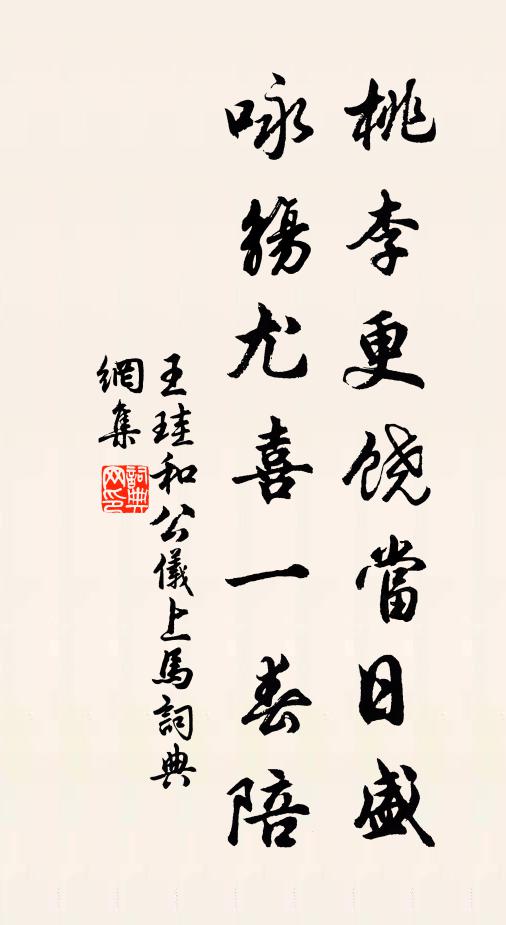 桃李更饶當日盛
咏觴尤喜一春陪
王珪和公儀上馬詞典
網集
詞典網印